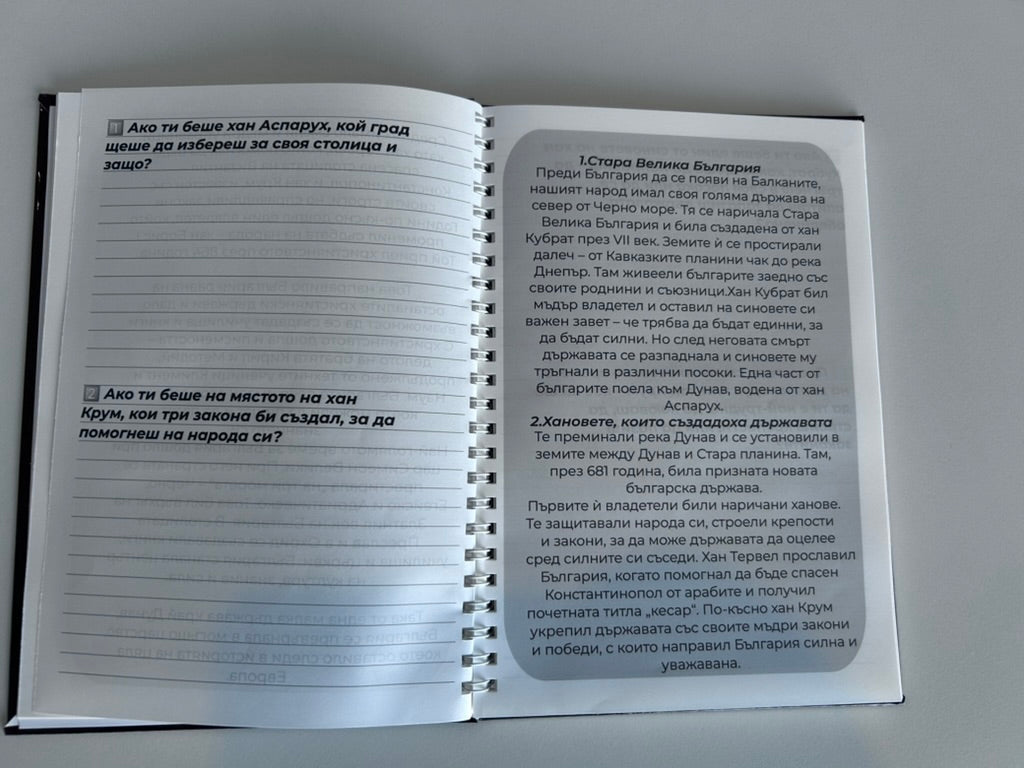 1 Ако ти беше хан Аспарух, кой град
щеше да избереш за своя столица и
защо?
2 Ако ти беше на мястото на хан
Крум, кои три закона би създал, за да
помогнеш на народа си?
1.Стара Велика България
Преди България да се появи на Балканите,
нашият народ имал своя голяма държава на
север от Черно море. Тя се наричала Стара
Велика България и била създадена от хан
Кубрат през VII век. Земите ѝ се простирали
далеч – от Кавказките планини чак до река
Днепър. Там живеели българите заедно със
своите роднини и съюзници.Хан Кубрат бил
мъдър владетел и оставил на синовете си
важен завет – че трябва да бъдат единни, за
да бъдат силни. Но след неговата смърт
държавата се разпаднала и синовете му
тръгнали в различни посоки. Една част от
българите поела към Дунав, водена от хан
Аспарух.
2.Хановете, които създадоха държавата
Те преминали река Дунав и се установили в
земите между Дунав и Стара планина. Там,
през 681 година, била призната новата
българска държава.
Първите ѝ владетели били наричани ханове.
Те защитавали народа си, строели крепости
и закони, за да може държавата да оцелее
сред силните си съседи. Хан Тервел прославил
България, когато помогнал да бъде спасен
Константинопол от арабите и получил
почетната титла „кесар“. По-късно хан Крум
укрепил държавата със своите мъдри закони
и победи, с които направил България силна и
уважавана.